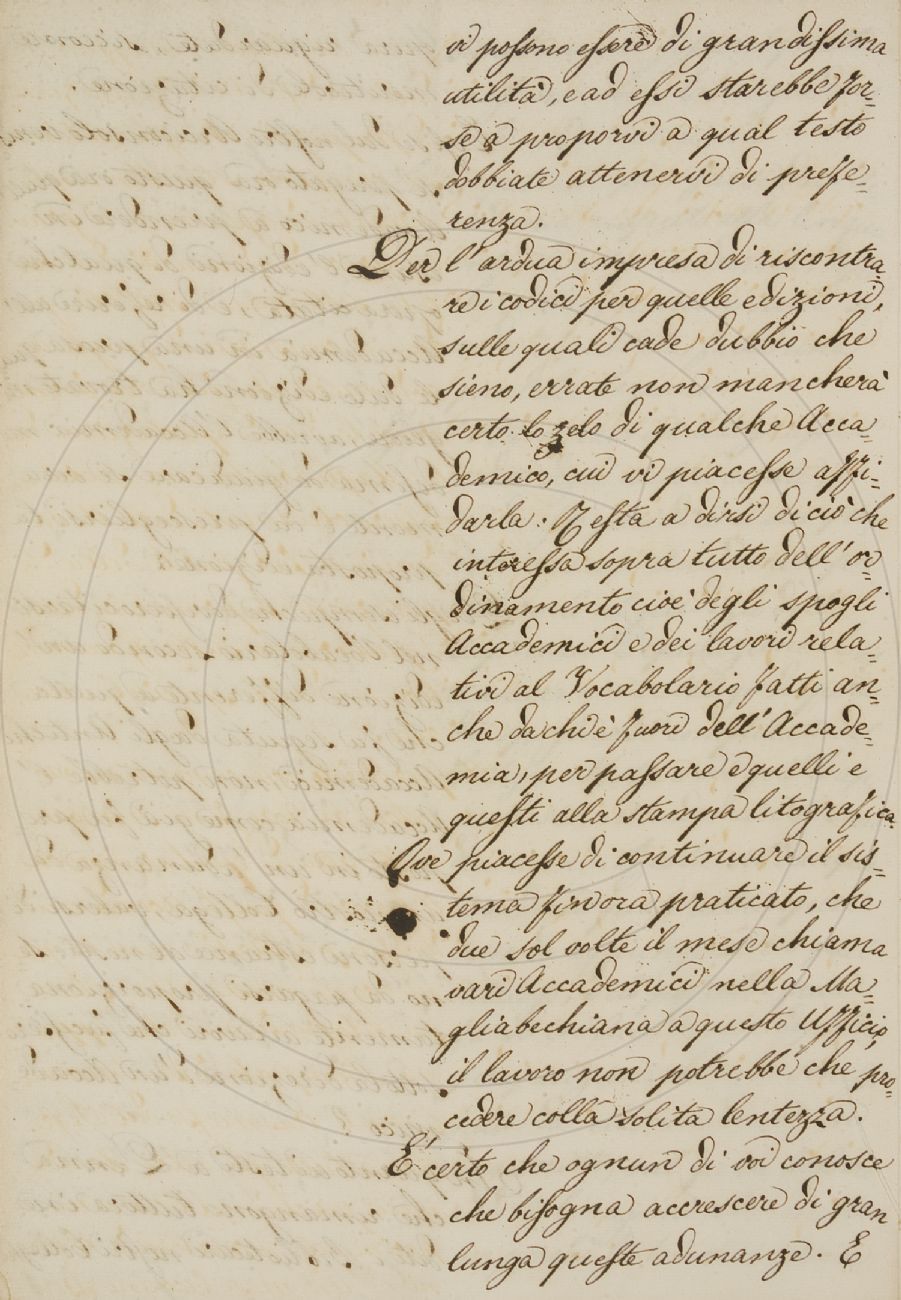 vi possono essere di grandissima
utilità, e ad essi starebbe for=
se a proporvi a qual testo
dobbiate attenervi di prefe=
renza.
Per l'ardua impresa di riscontra=
re i codici per quelle edizioni,
sulle quali cade dubbio che
sieno, errate non mancherà
certo lo zelo di qualche Acca=
demico, cui vi piacesse affi=
darla. Resta a dirsi di ciò che
interessa sopra tutto dell'or=
dinamento cioè degli spogli
Accademici e dei lavori rela=
tivi al Vocabolario fatti an=
che da chi è fuori dell'Accade=
mia, per passare e quelli e
questi alla stampa litografica.
Ove piacesse di continuare il sis=
tema finora praticato, che
due sol volte il mese chiama
vari Accademici nella Ma=
gliabechiana a questo Ufficio,
il lavoro non potrebbe che pro=
cedere colla solita lentezza.
E' certo che ognun di voi conosce
che bisogna accrescere di gran
lunga queste adunanze. E